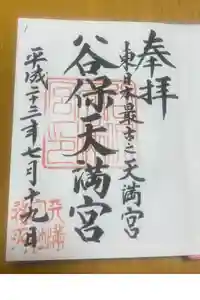 奉拝
東日本最古之天満宮
谷保天満宮
平成二十三年七月十九日